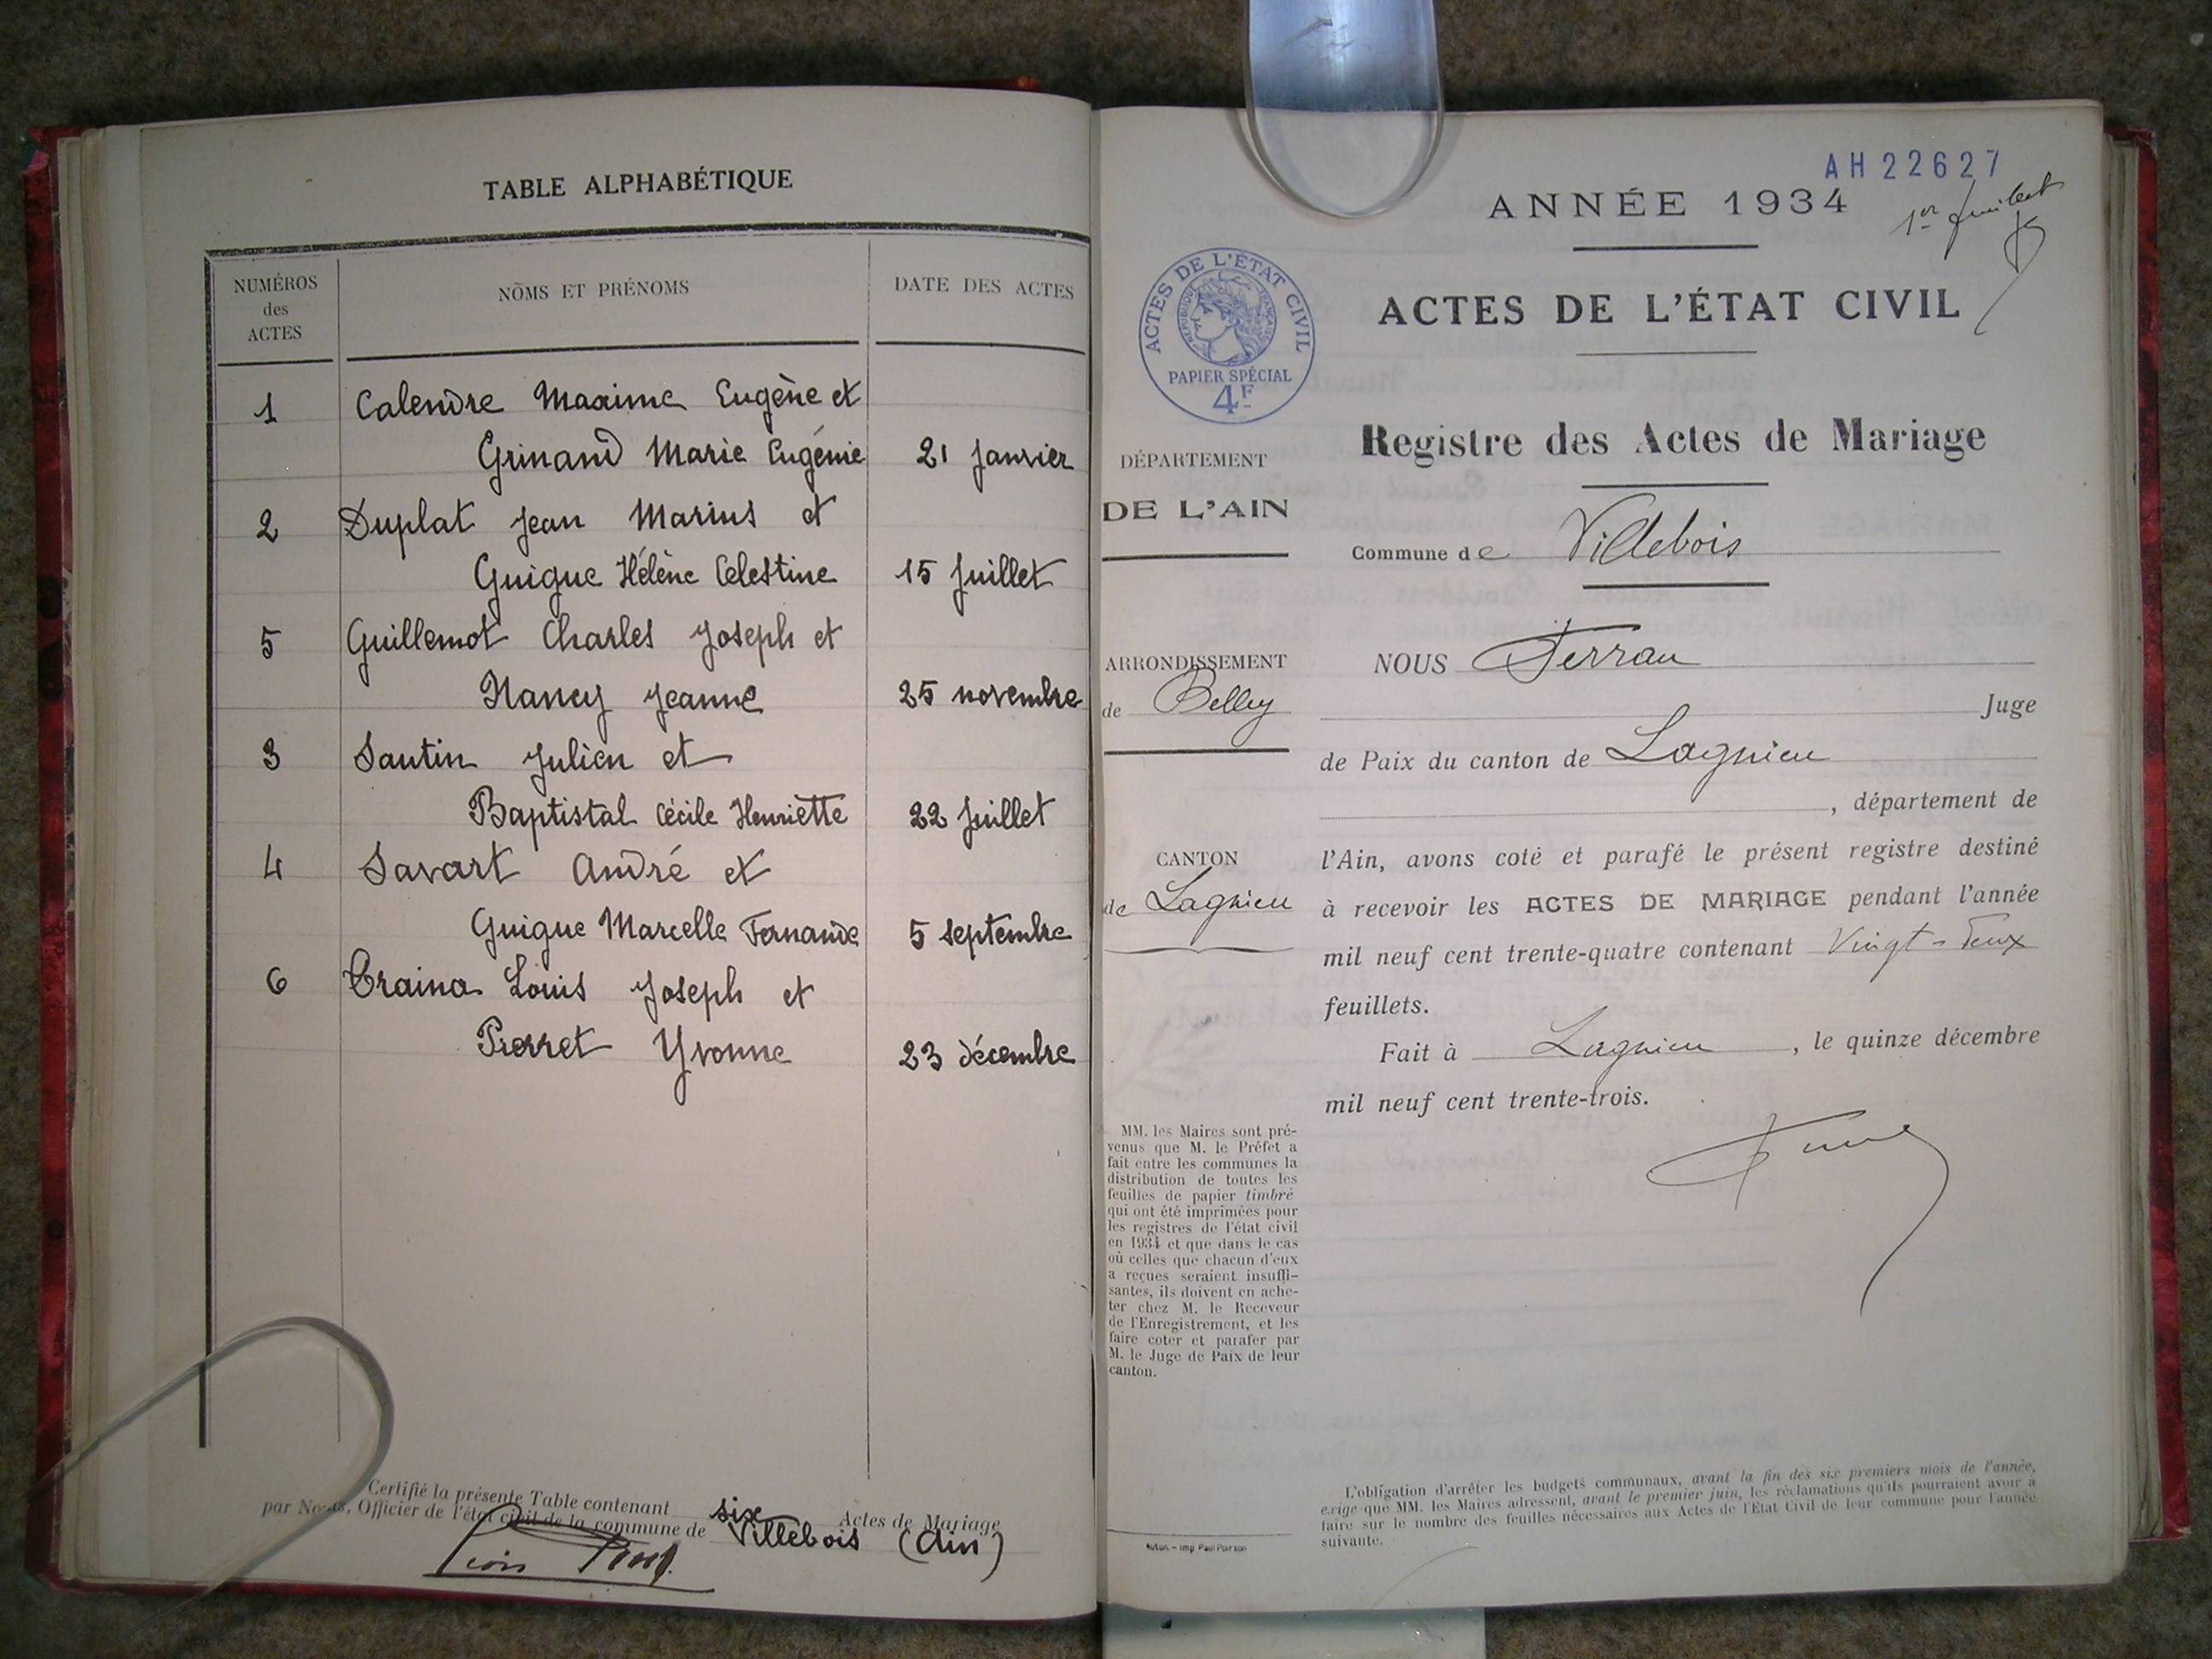 TABLE ALPHABÉTIQUE
NUMÉROS
des
ACTES
NOMS ET PRÉNOMS
DATE DES ACTES
1 Calendre Maxime Eugène et
Grinand Marie Eugénie 21 Janvier
2 Duplat Jean Marius et
Guigue Hélène Celestine 15 Juillet
5 Guillemot Charles Joseph et
Nancy Jeanne 25 novembre
3 Santin Julien et
Baptistal Cécile Henriette 22 Juillet
4 Savart André et
Guigue Marcelle Fernande 5 septembre
6 Craina Louis Joseph et
Pierret Yvonne 23 décembre
Certifié la présente Table contenant six Actes de Mariage
par Nous, Officier de l'état civil de la commune de Villebois (Ain)
AH 22627
ANNÉE 1934
1er Juillet
ACTES DE L'ÉTAT CIVIL
RÉPUBLIQUE FRANÇAISE
PAPIER SPÉCIAL
4F
ACTES DE L'ÉTAT CIVIL
Registre des Actes de Mariage
DÉPARTEMENT
DE L'AIN
Commune de Villebois
ARRONDISSEMENT
de Belley
CANTON
de Lagnieu
NOUS Ferran
Juge
de Paix du canton de Lagnieu
, département de
l'Ain, avons coté et parafé le présent registre destiné
à recevoir les ACTES DE MARIAGE pendant l'année
mil neuf cent trente-quatre contenant Vingt-deux
feuillets.
Fait à Lagnieu, le quinze décembre
mil neuf cent trente-trois.
MM. les Maires sont pré-
venus que M. le Préfet a
fait entre les communes la
distribution de toutes les
feuilles de papier timbré
qui ont été imprimées pour
les registres de l'état civil
en 1934 et que dans le cas
où celles que chacun d'eux
a reçues seraient insuffi-
santes, ils doivent en ache-
ter chez M. le Receveur
de l'Enregistrement, et les
faire coter et parafer par
M. le Juge de Paix de leur
canton.
Autun. - Imp. Paul Poirson
L'obligation d'arrêter les budgets communaux, avant la fin des six premiers mois de l'année,
exige que MM. les Maires adressent, avant le premier juin, les réclamations qu'ils pourraient avoir à
faire sur le nombre des feuilles nécessaires aux Actes de l'Etat Civil de leur commune pour l'année
suivante.